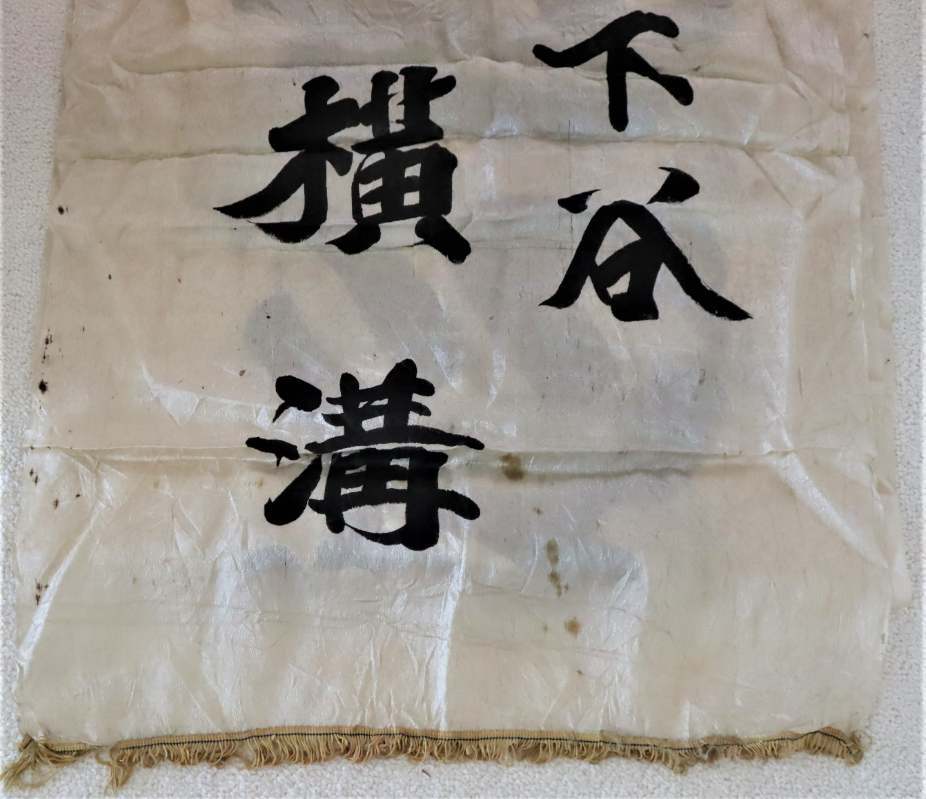 下谷
横溝